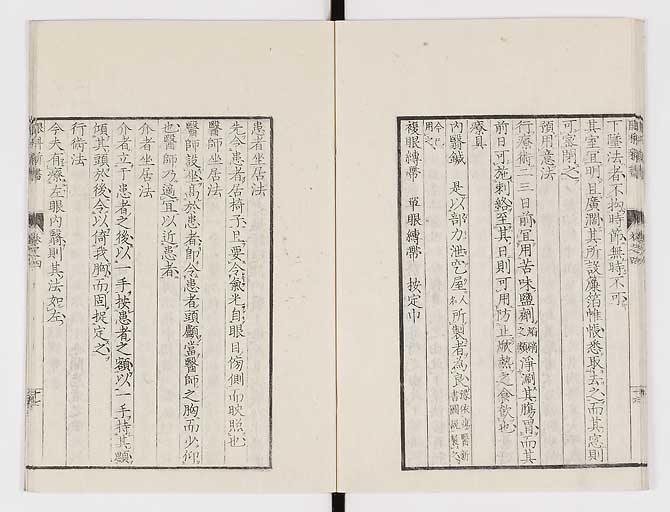 下墜法者不拘時節無時不可
其室宜明且廣濶其所設簾箔帷帳悉取去之而其窓則
可密閉之
預用意法
行療術二三日前宜用苦味鹽劑 之類 淨涮其腸胃而其
前日可施刺絡至其日則可用防止厥熱之食飲也
療具
內翳鍼 是以部力泄空屋人名所製者為良
用之
複眼縛帶 單眼縛帶 按定巾
眼科新書 卷之四
患者坐居法
先令患者居椅子上要令氣光自眼目傍側而映照也
醫師坐居法
醫師設坐高於患者即令患者頭顱當醫師之胸而少仰
也醫師乃適宜以近患者
介者坐居法
介者立于患者之後以一手按患者之額以一手持其顋
傾其頭於後令以倚我胸而固捉定之
行術法
令夫有療左眼內翳則其法如左